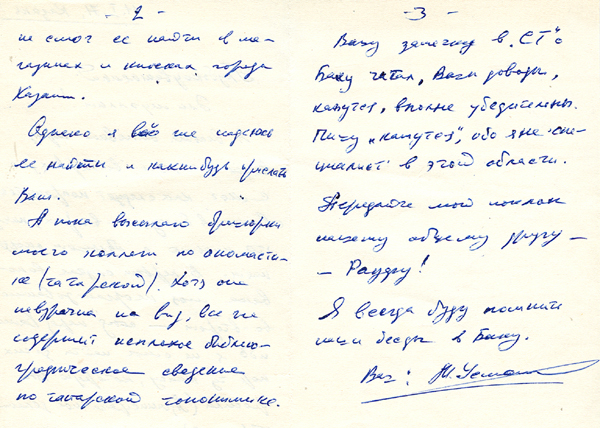 - 2 -
не смог ее найти в ма-
газинах и киосках города
Казани.
Однако я всё же надеюсь
ее найти и как нибудь прислать
Вам.
А пока высылаю брошюрки
моего коллеги по ономасти-
ке (татарской). Хотя она
невзрачна на вид, все же
содержит неплохое библио-
графическое сведение
по татарской топонимике.
- 3 -
Вашу заметку в „СТ" о
Баку читал, Ваши доводы,
кажутся, вполне убедительны.
Пишу „кажутся", ибо я не спе-
циалист в этой области.
Передайте мой поклон
нашему общему другу –
– Рауфу!
Я всегда буду помнить
наши беседы в Баку.
Ваш: